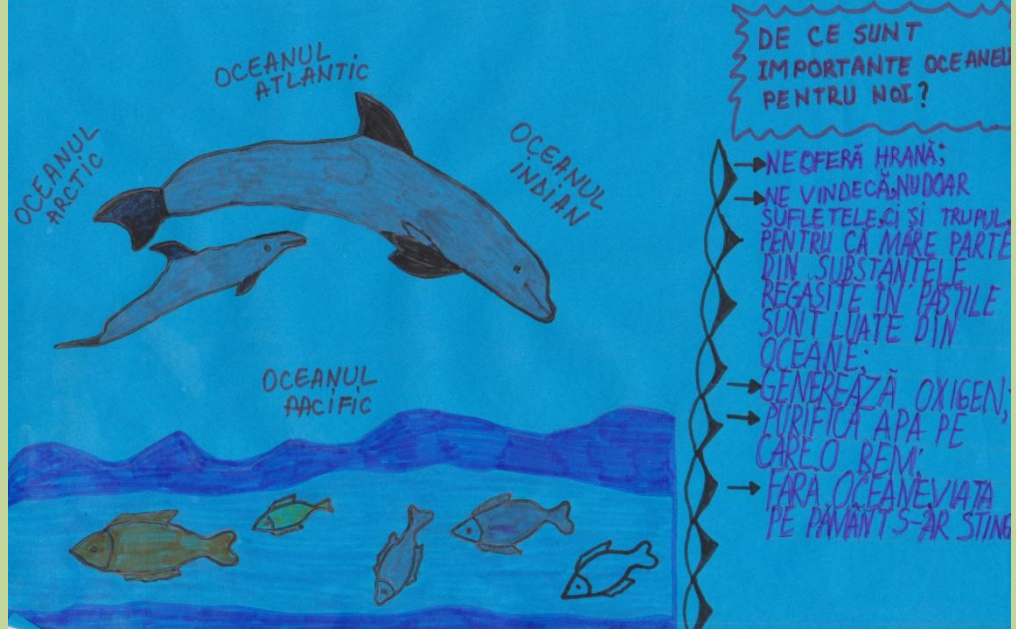 OCEANUL
ATLANTIC
OCEANUL
ARCTIC
OCEANUL
INDIAN
OCEANUL
PACIFIC
DE CE SUNT
IMPORTANTE OCEANELE
PENTRU NOI?
NE OFERĂ HRANĂ;
NE VINDECĂ,NU DOAR
SUFLETELE,CI ȘI TRUPUL,
PENTRU CĂ MARE PARTE
DIN SUBSTANȚELE
REGĂSITE ÎN PASTILE
SUNT LUATE DIN
OCEANE;
GENEREAZĂ OXIGEN;
PURIFICĂ APA PE
CARE O BEM;
FĂRĂ OCEANE VIAȚA
PE PĂMÂNT S-AR STING